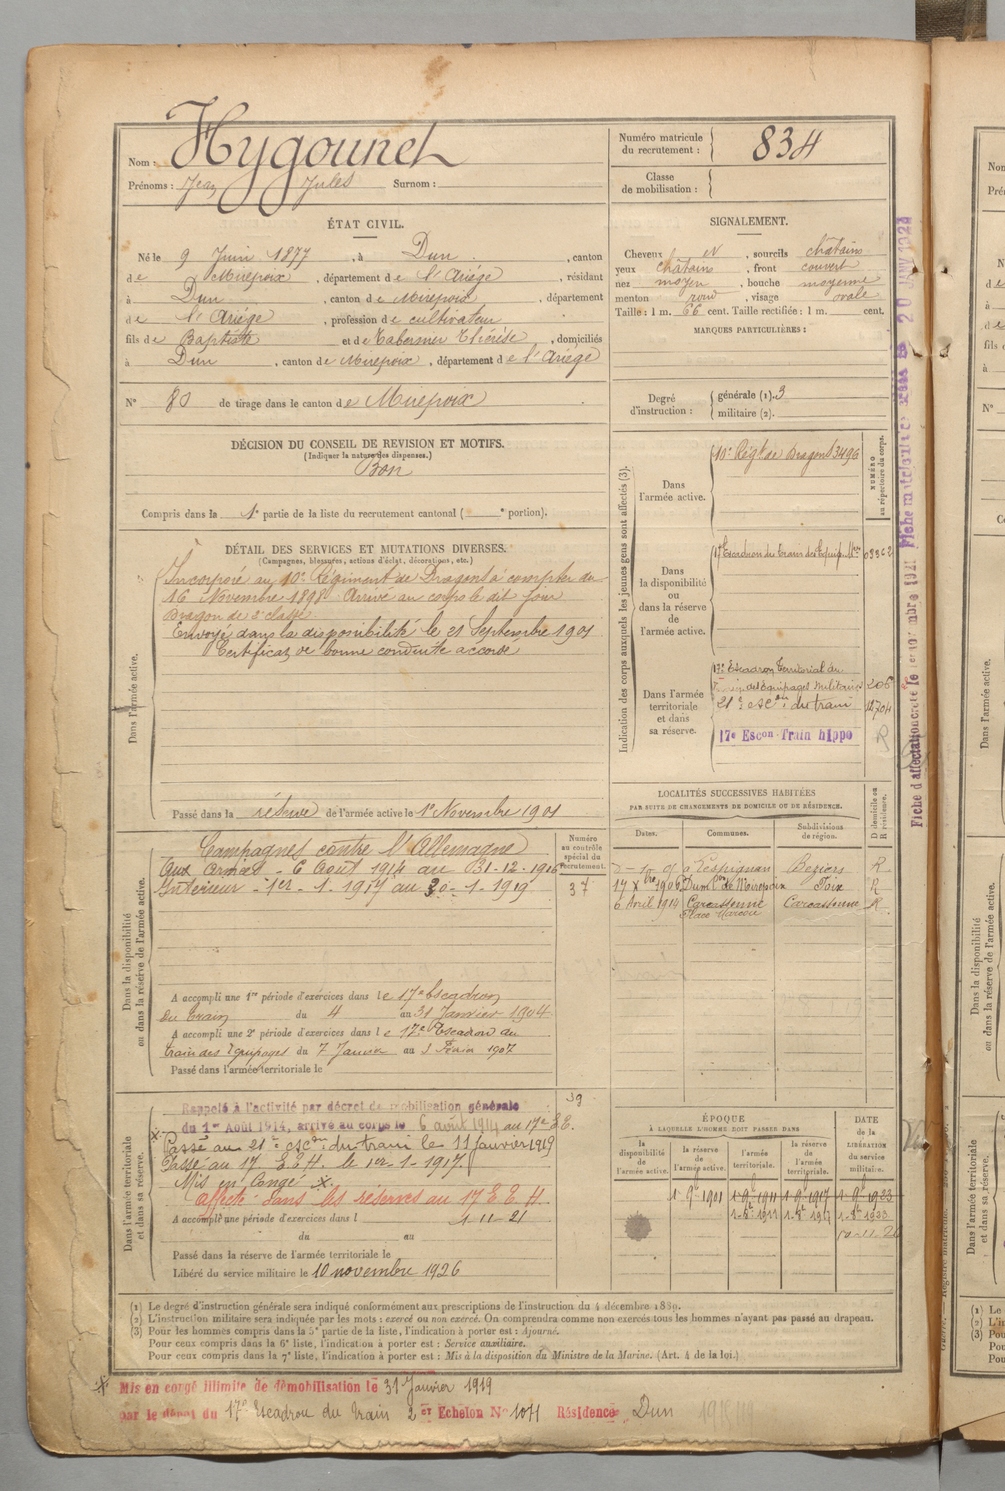 Nom : Hygounet
Prénoms : Jean Jules Surnom :
Numéro matricule du recrutement : 834
Classe de mobilisation :
ÉTAT CIVIL.
Né le 9 Juin 1877, à Dun, canton
de Mirepoix, département de l'Ariège, résidant
à Dun, canton de Mirepoix, département
de l'Ariège, profession de cultivateur
fils de Baptiste et de Thérèse, domiciliés
à Dun, canton de Mirepoix, département de l'Ariège
N° 80 de tirage dans le canton de Mirepoix
SIGNALEMENT.
Cheveux N, sourcils châtains
yeux châtains, front couvert
nez moyen, bouche moyenne
menton rond, visage ovale
Taille : 1 m. 66 cent. Taille rectifiée : 1 m. cent.
MARQUES PARTICULIÈRES :
Degré d'instruction : générale (1). 3
militaire (2).
DÉCISION DU CONSEIL DE REVISION ET MOTIFS.
(Indiquer la nature des dispenses.)
Bon
Compris dans la 1e partie de la liste du recrutement cantonal ( e portion).
DÉTAIL DES SERVICES ET MUTATIONS DIVERSES.
(Campagnes, blessures, actions d'éclat, décorations, etc.)
Dans l'armée active.
Incorporé au 10e Régiment de Dragons à compter du
16 Novembre 1898 Arrivé au corps le dit jour
Dragon de 2e classe
Envoyé dans la disponibilité le 21 Septembre 1901
Certificat de bonne conduite accordé
Passé dans la réserve de l'armée active le 1er Novembre 1901
Indication des corps auxquels les jeunes gens sont affectés (3).
NUMÉRO au répertoire du corps.
Dans l'armée active.
10e Régt de Dragons 3496
Dans la disponibilité ou dans la réserve de l'armée active.
17 Escadron du Train des Equip. Mres 03362
Dans l'armée territoriale et dans sa réserve.
17e Escadron Territorial du
Train des Equipages Militaires 206
21e escon du train 12704
17e Escon Train hippo R
Fiche d'affectation
LOCALITÉS SUCCESSIVES HABITÉES
PAR SUITE DE CHANGEMENTS DE DOMICILE OU DE RÉSIDENCE.
Dates. Communes. Subdivisions de région. D domicile ou R résidence.
à Lespignan Beziers R
17 Xbre 1906 Dun con de Mirepoix Foix R
6 Avril 1914 Carcassonne Carcassonne R
Place Marcou
Dans la disponibilité ou dans la réserve de l'armée active.
Numéro au contrôle spécial du recrutement.
37
Campagnes contre l'Allemagne
Aux Armées - 6 Août 1914 au 31-12-1916
Intérieur - 1er-1-1917 au 30-1-1919
A accompli une 1re période d'exercices dans le 17e Escadron
du Train du 4 au 31 Janvier 1904
A accompli une 2e période d'exercices dans le 17e Escadron du
train des équipages du 7 Janvier au 3 Février 1907
Passé dans l'armée territoriale le
Dans l'armée territoriale et dans sa réserve.
39
Rappelé à l'activité par décret de mobilisation générale
du 1er Août 1914, arrivé au corps le 6 août 1914 au 17e E.E.
Passé au 21e escon du train le 11 janvier 1919
Passé au 17 E.E.H. le 1er-1-1917.
Mis en congé X
affecté dans les réserves au 17 E E H.
A accompli une période d'exercices dans l 1-11-21
du au
Passé dans la réserve de l'armée territoriale le
Libéré du service militaire le 10 novembre 1926
ÉPOQUE
À LAQUELLE L'HOMME DOIT PASSER DANS
la disponibilité de l'armée active. la réserve de l'armée active. l'armée territoriale. la réserve de l'armée territoriale. DATE de la LIBÉRATION du service militaire.
1-9bre 1901 1-9bre 1911 1-9bre 1917 1-9bre 1923
(1) Le degré d'instruction générale sera indiqué conformément aux prescriptions de l'instruction du 4 décembre 1889.
(2) L'instruction militaire sera indiquée par les mots : exercé ou non exercé. On comprendra comme non exercés tous les hommes n'ayant pas passé au drapeau.
(3) Pour les hommes compris dans la 5e partie de la liste, l'indication à porter est : Ajourné.
Pour ceux compris dans la 6e liste, l'indication à porter est : Service auxiliaire.
Pour ceux compris dans la 7e liste, l'indication à porter est : Mis à la disposition du Ministre de la Marine. (Art. 4 de la loi.)
Mis en congé illimité de démobilisation le 31 Janvier 1919
par le dépôt du 17e Escadron du Train 2e Echelon N° 1071 Résidence Dun